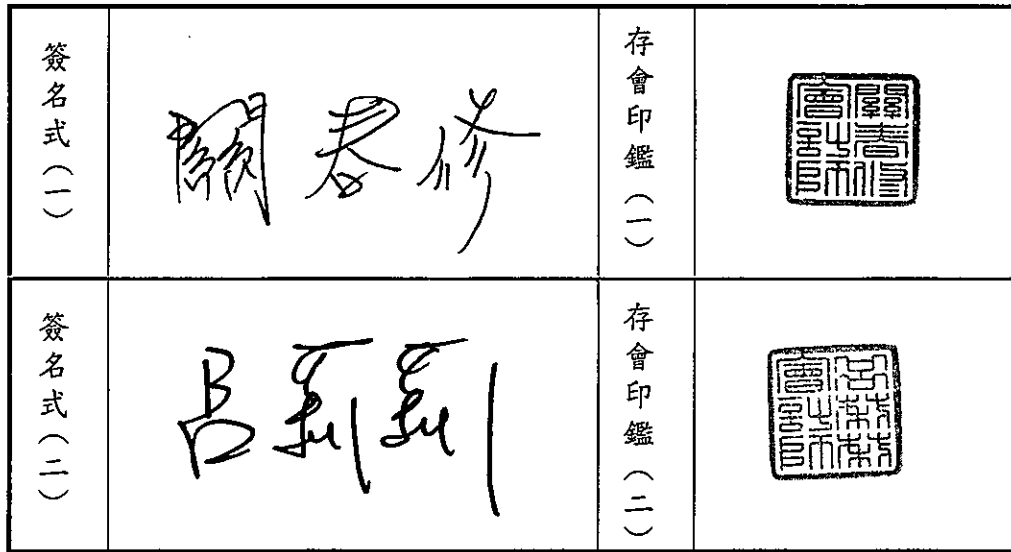 簽名式(一)
關春修
存會印鑑(一)
關春修
會計師
簽名式(二)
呂莉莉
存會印鑑(二)
呂莉莉
會計師